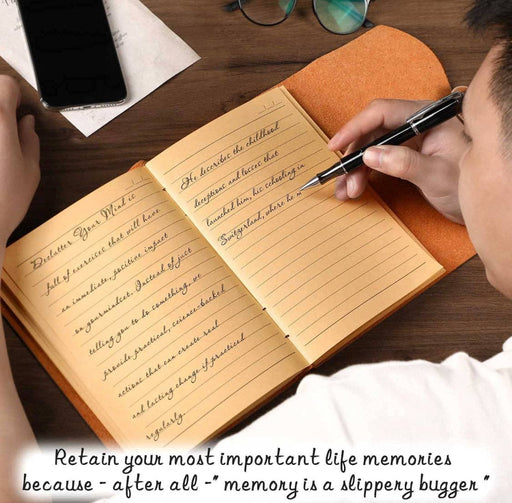 Declutter Your Mind is
full of exercises that will have
an immediate, positive impact
on yourmindset. Instead of just
telling you to do something, we
provide practical, science-backed
actions that can create real
and lasting change if practiced
regularly.
He describes the childhood
deceptions and losses that
launched him, his schooling in
Switzerland, where he m
Retain your most important life memories
because - after all -" memory is a slippery bugger "